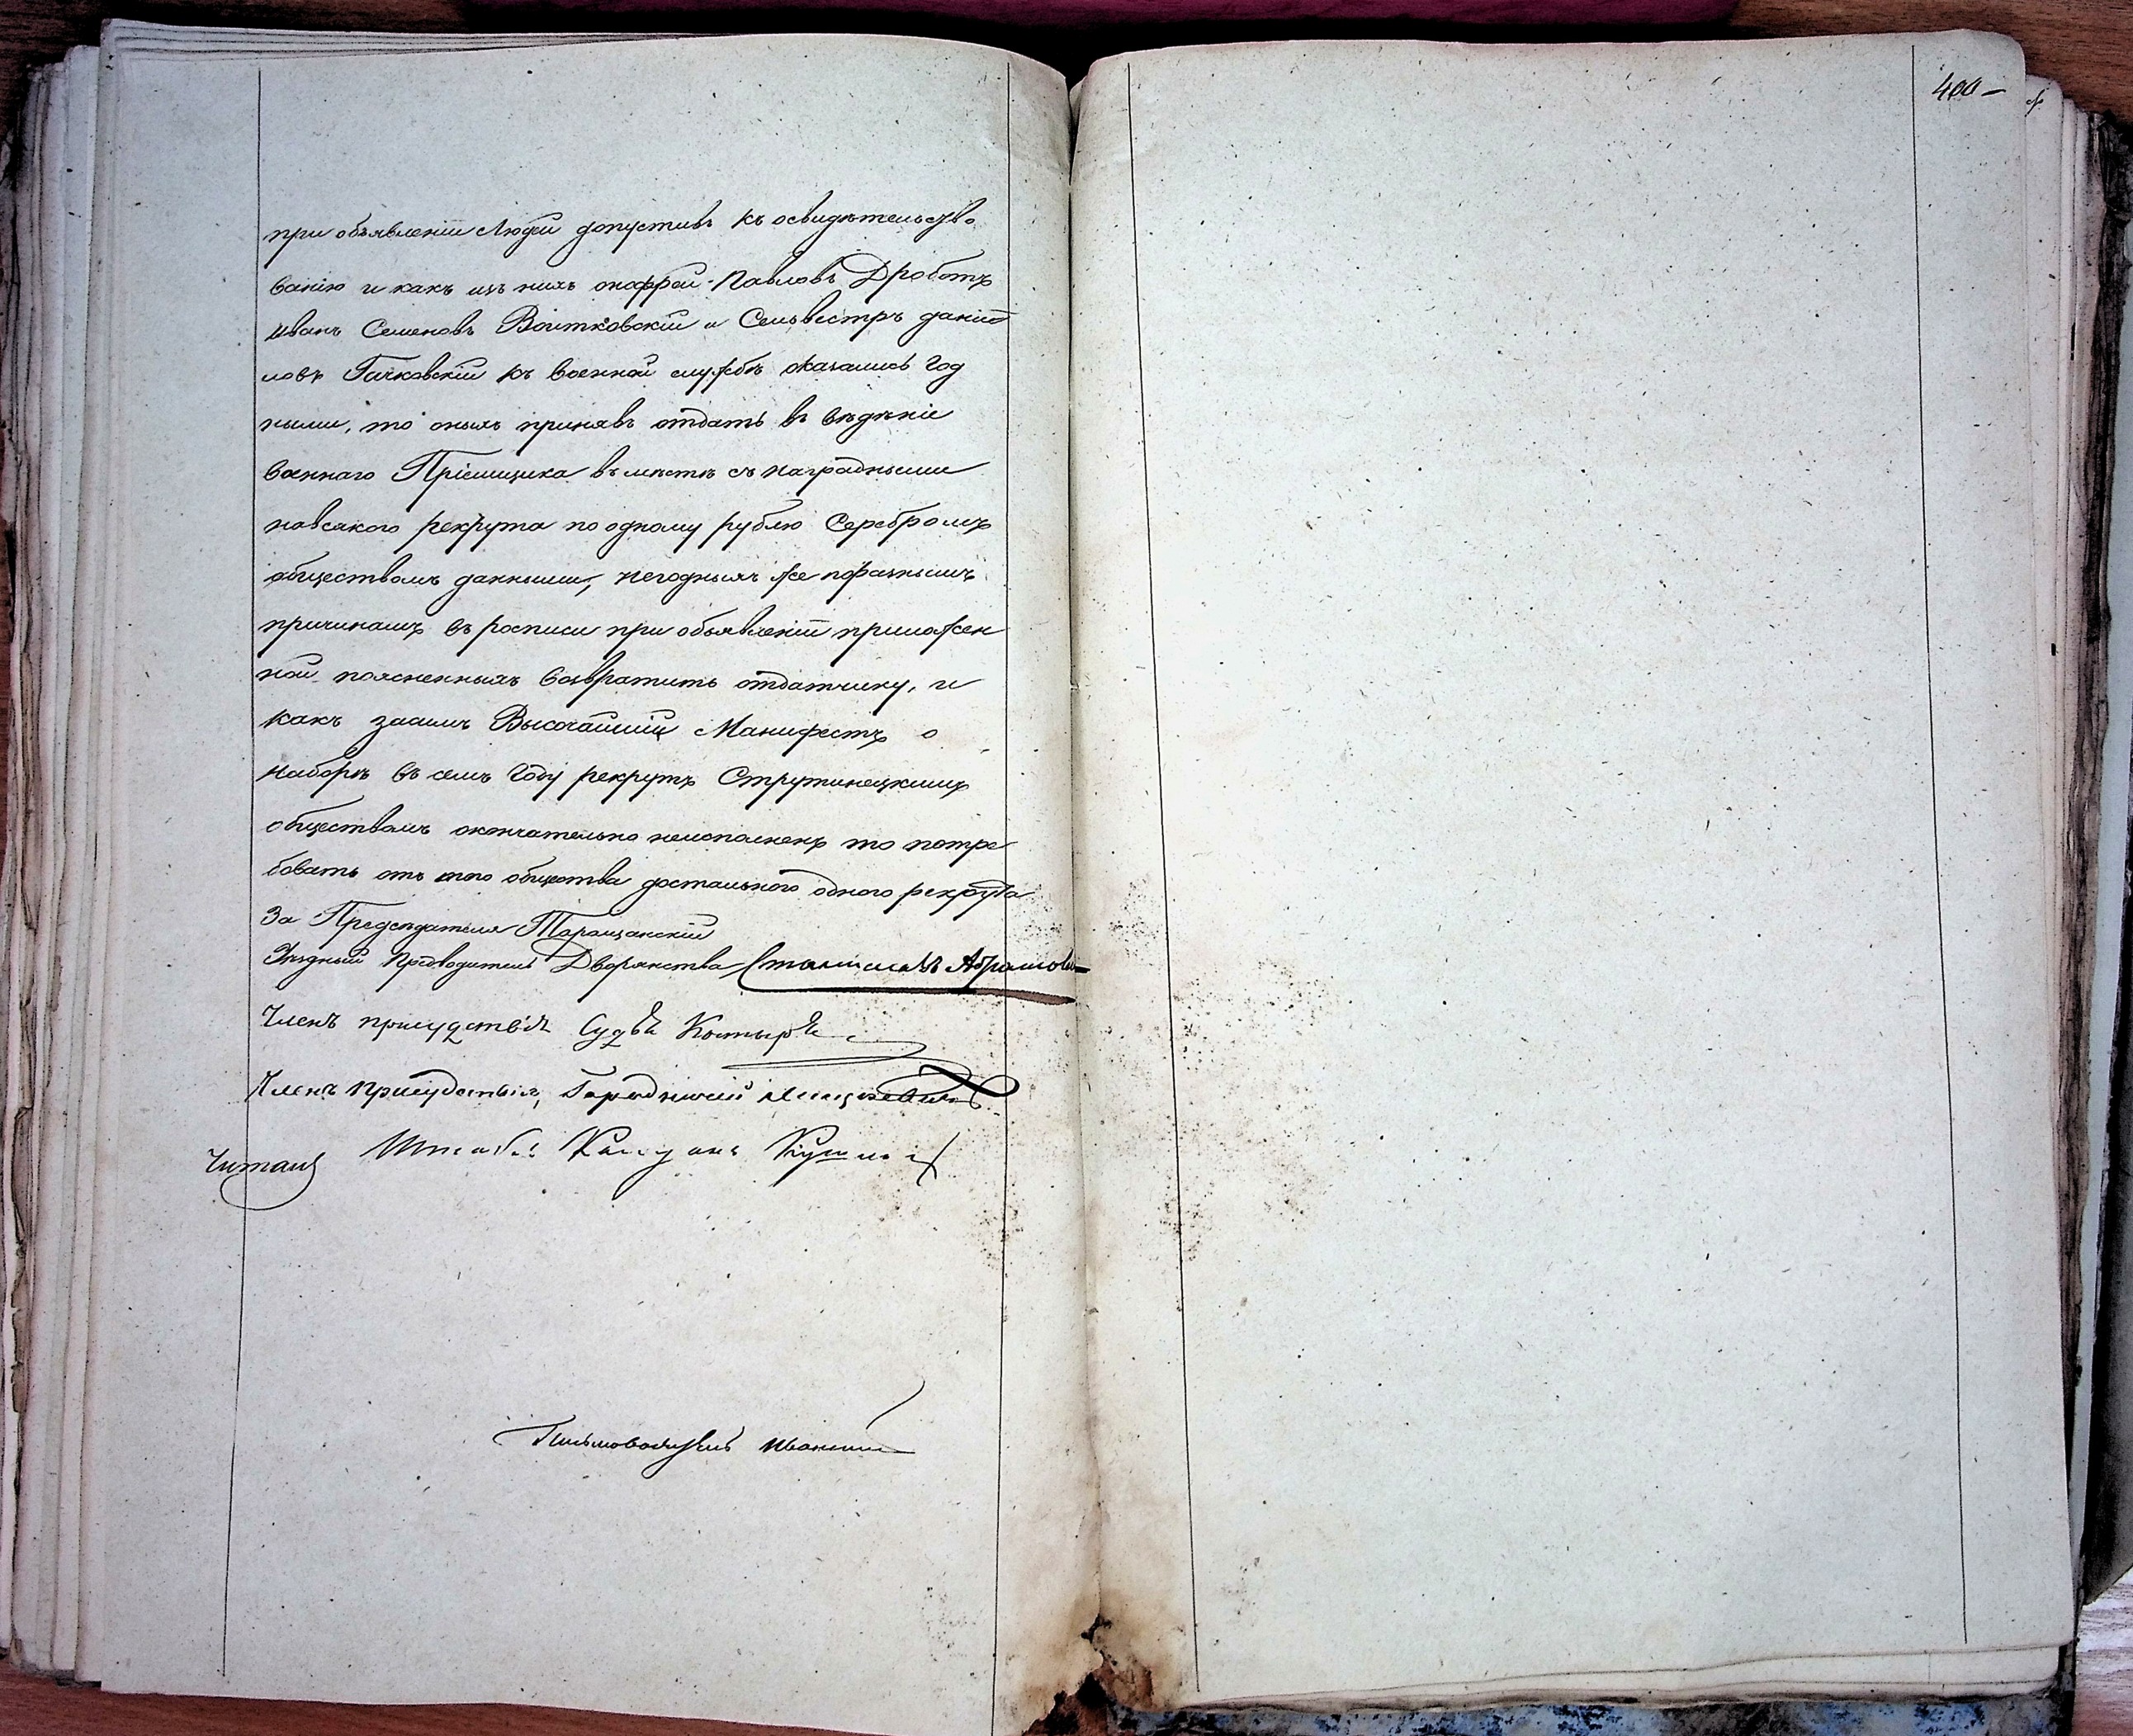 400 —
при объявленіи Людей допустивъ къ освидѣтельство
ванію и какъ изъ нихъ онофрей Павловъ Дроботъ
Иванъ Семеновъ Воитковскій и Сельвестръ дании
ловъ Гачковскій къ военной службѣ оказались год
ными, то оныхъ принявъ отдать въ вѣдѣніе
военнаго Пріемщика въ мѣстѣ съ наградными
навсякого рекрута по одному рублю Серебромъ
обществомъ данными, негодныхъ же поразнымъ
причинамъ въ росписи при объявленіи приложен
ной поясненныхъ возвратить отдатчику, и
какъ засимъ Высочайшій Манифестъ о
наборѣ въ семъ году рекрутъ Струтинецкимъ
обществомъ окончательно неисполненъ то потре
бовать отъ того общества достального одного рекрута
За Председателя Таращанскій
Уѣздный Предводитель Дворянства Станиславъ
Членъ присудствія Судья Костыря
Членъ присудствія, Городничій
Читалъ
Штабъ
Письмоводитель